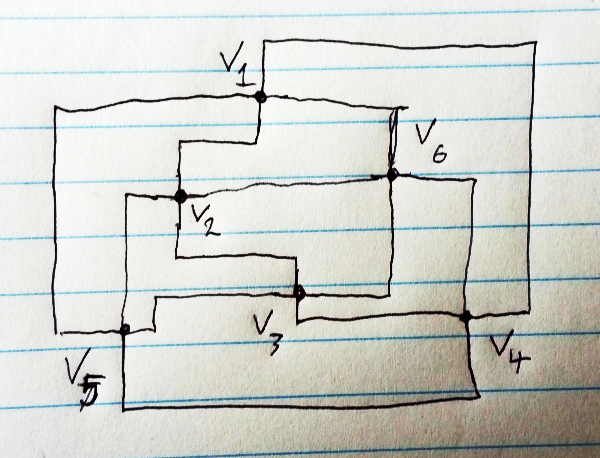 V1
V6
V2
V3
V4
V5